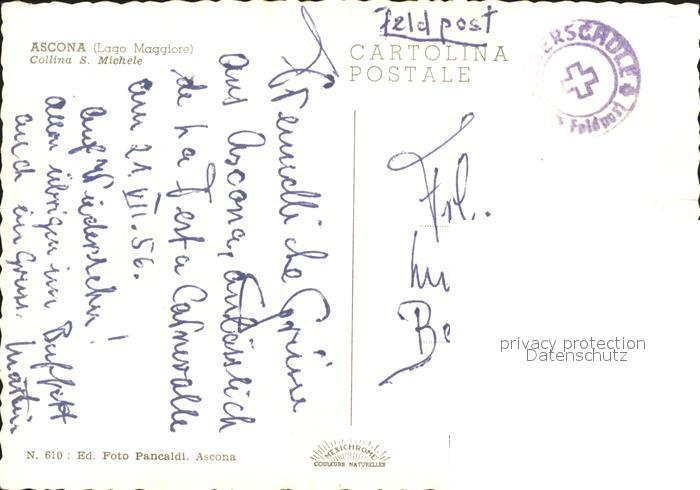 Feldpost
ASCONA (Lago Maggiore)
Collina S. Michele
CARTOLINA
POSTALE
Feldpost
Freundliche Grüsse
aus Ascona, anlässlich
de la Festa Carnevalle
am 21.VII.56.
Auf Wiedersehn!
allen übrigen im Buffet
auch ein Gruss. Martin
Frl.
Be
privacy protection
Datenschutz
N. 610 : Ed. Foto Pancaldi. Ascona
MEXICHROME
COULEURS NATURELLES